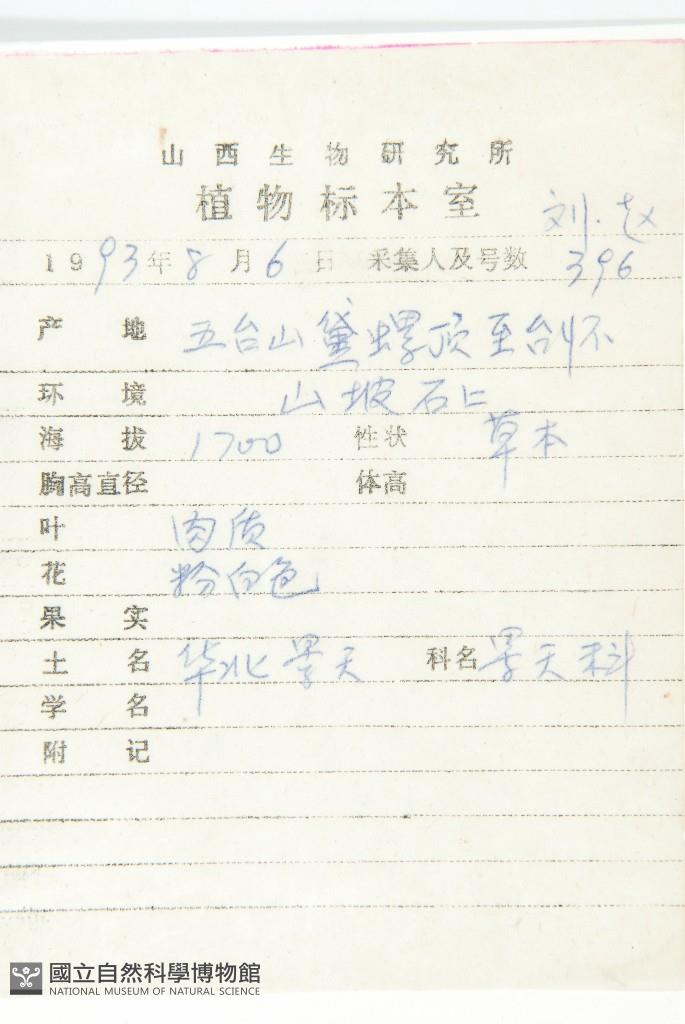 山西生物研究所
植物标本室
刘.赵
1993年8月6日 采集人及号数 396
产地 五台山黛螺顶至台怀
环境 山坡石上
海拔 1700 性状 草本
胸高直径 体高
叶 肉质
花 粉白色
果实
土名 华北景天 科名 景天科
学名
附记
國立自然科學博物館
NATIONAL MUSEUM OF NATURAL SCIENCE